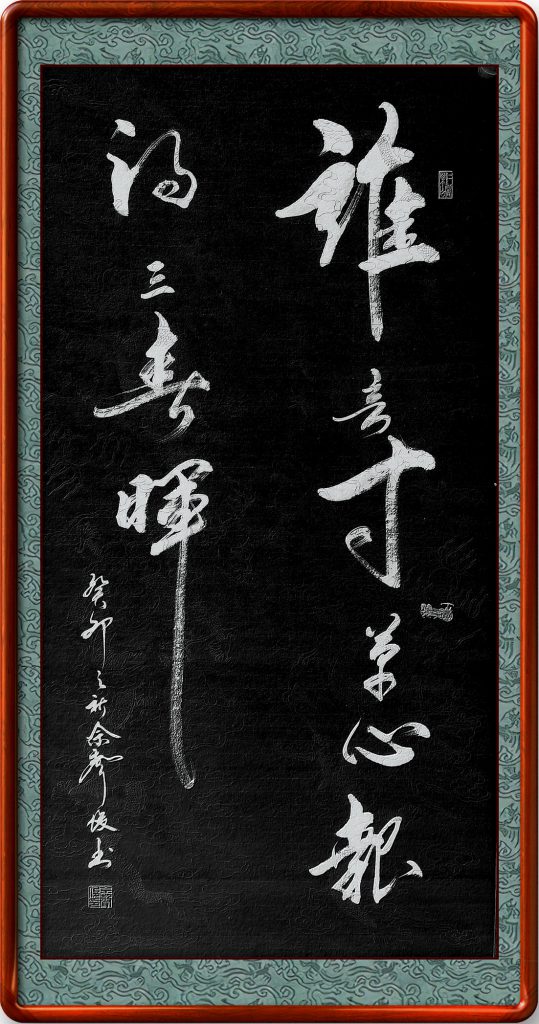 誰言寸草心報
得三春暉
癸卯之秋余俊书